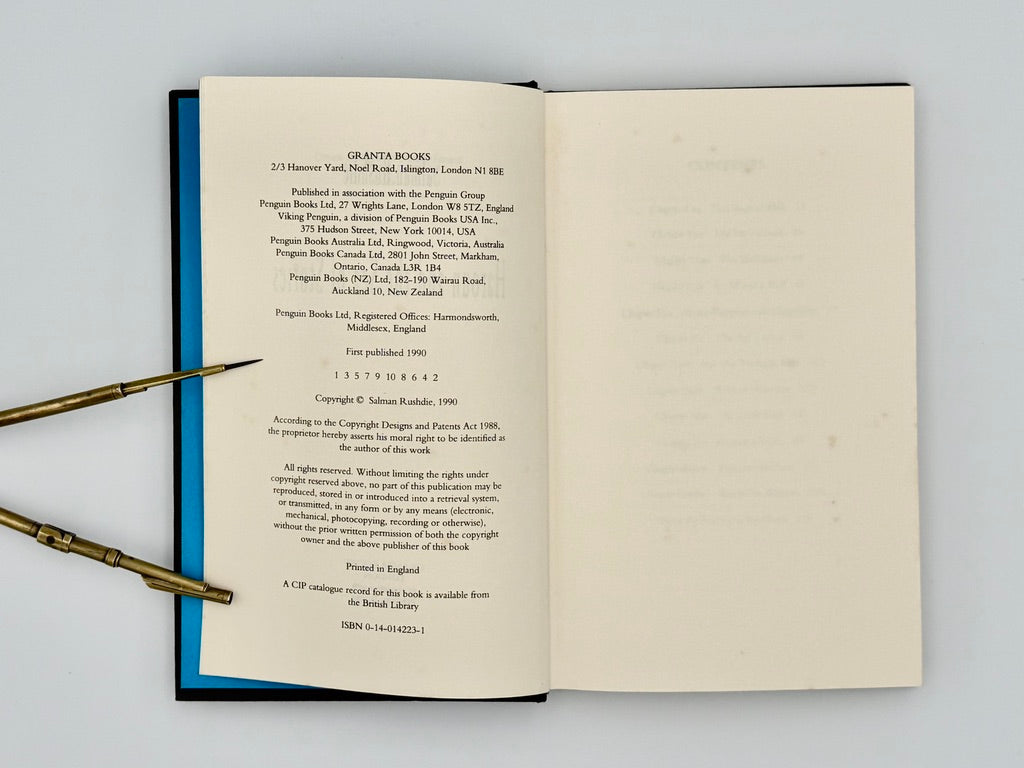 GRANTA BOOKS
2/3 Hanover Yard, Noel Road, Islington, London N1 8BE
Published in association with the Penguin Group
Penguin Books Ltd, 27 Wrights Lane, London W8 5TZ, England
Viking Penguin, a division of Penguin Books USA Inc.,
375 Hudson Street, New York 10014, USA
Penguin Books Australia Ltd, Ringwood, Victoria, Australia
Penguin Books Canada Ltd, 2801 John Street, Markham,
Ontario, Canada L3R 1B4
Penguin Books (NZ) Ltd, 182-190 Wairau Road,
Auckland 10, New Zealand
Penguin Books Ltd, Registered Offices: Harmondsworth,
Middlesex, England
First published 1990
1 3 5 7 9 10 8 6 4 2
Copyright © Salman Rushdie, 1990
According to the Copyright Designs and Patents Act 1988,
the proprietor hereby asserts his moral right to be identified as
the author of this work
All rights reserved. Without limiting the rights under
copyright reserved above, no part of this publication may be
reproduced, stored in or introduced into a retrieval system,
or transmitted, in any form or by any means (electronic,
mechanical, photocopying, recording or otherwise),
without the prior written permission of both the copyright
owner and the above publisher of this book
Printed in England
A CIP catalogue record for this book is available from
the British Library
ISBN 0-14-014223-1